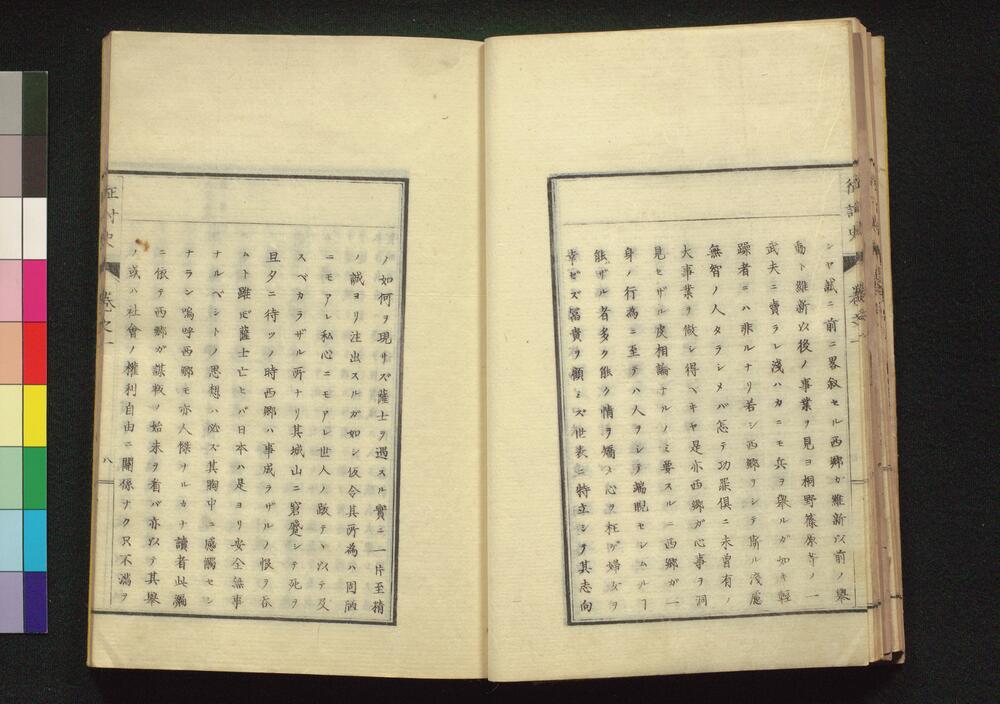 シヤ試ニ前ニ畧叙セル西郷ガ維新以前ノ擧
動ト維新以後ノ事業ヲ見ヨ桐野篠原等ノ一
武夫ニ賣ラレ淺ハカニモ兵ヲ擧ルガ如キ輕
躁者ニハ非ルナリ若シ西郷ヲシテ斯ル淺慮
無智ノ人タラシメバ怎テ功罪倶ニ未曽有ノ
大事業ヲ做シ得ベキヤ是亦西郷ガ心事ヲ洞
見セザル皮相論ナルノミ要スルニ西郷ガ一
身ノ行為ニ至テハ人ヲシテ端睨セシムルヿ
能ザル者多ク能ク情ヲ矯メ心ヲ枉ゲ婦女ヲ
幸ビズ冨貴ヲ顧ミズ世表ニ特立シテ其志向
征討史 巻之一
ノ如何ヲ現サズ薩士ヲ遇スル實ニ一片至情
ノ誠ヨリ注出スルガ如シ仮令其所為ハ固陋
ニモアレ私心ニモアレ世人ノ敢テ以テ及
スベカラザル所ナリ其城山ニ窮蹙シテ死ヲ
旦夕ニ待ツノ時西郷ハ事成ラザルノ恨ヲ呑
ムト雖𪜈薩士亡ビバ日本ハ是ヨリ安全無事
ナルベシトノ思想ハ必ズ其胸中ニ感觸セシ
ナラン嗚呼西郷モ亦人傑ナルカナ讀者此編
ニ依テ西郷ガ謀叛ノ始末ヲ看バ亦以テ其擧
ノ或ハ社會ノ權利自由ニ關係ナク只不満ヲ
征討史 巻之一 八